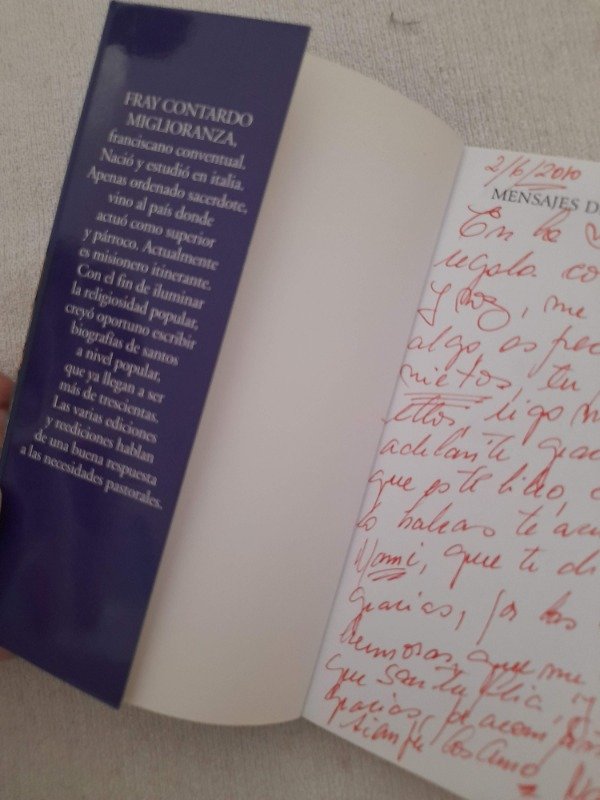 FRAY CONTARDO
MIGLIORANZA,
franciscano conventual.
Nació y estudió en italia.
Apenas ordenado sacerdote,
vino al país donde
actuó como superior
y párroco. Actualmente
es misionero itinerante.
Con el fin de iluminar
la religiosidad popular,
creyó oportuno escribir
biografías de santos
a nivel popular,
que ya llegan a ser
más de trescientas.
Las varias ediciones
y reediciones hablan
de una buena respuesta
a las necesidades pastorales.
2/6/2010
MENSAJES D
En la
regala co
y Paz, me
algo espec
nietos, tu
ellos, sigo
adelante grac
que este libro,
te
Mami, que te
gracias, por las
hermosas, que me
que son tu flia,
gracias,
siempre los amo